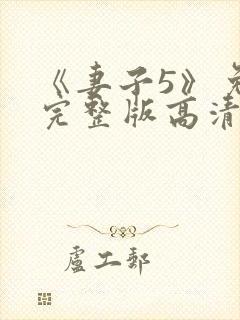 《妻子5》免
完整版高清
盧工郵